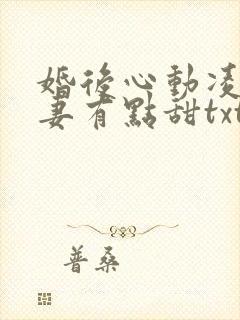 婚後心動凌
妻有點甜txt
普桑